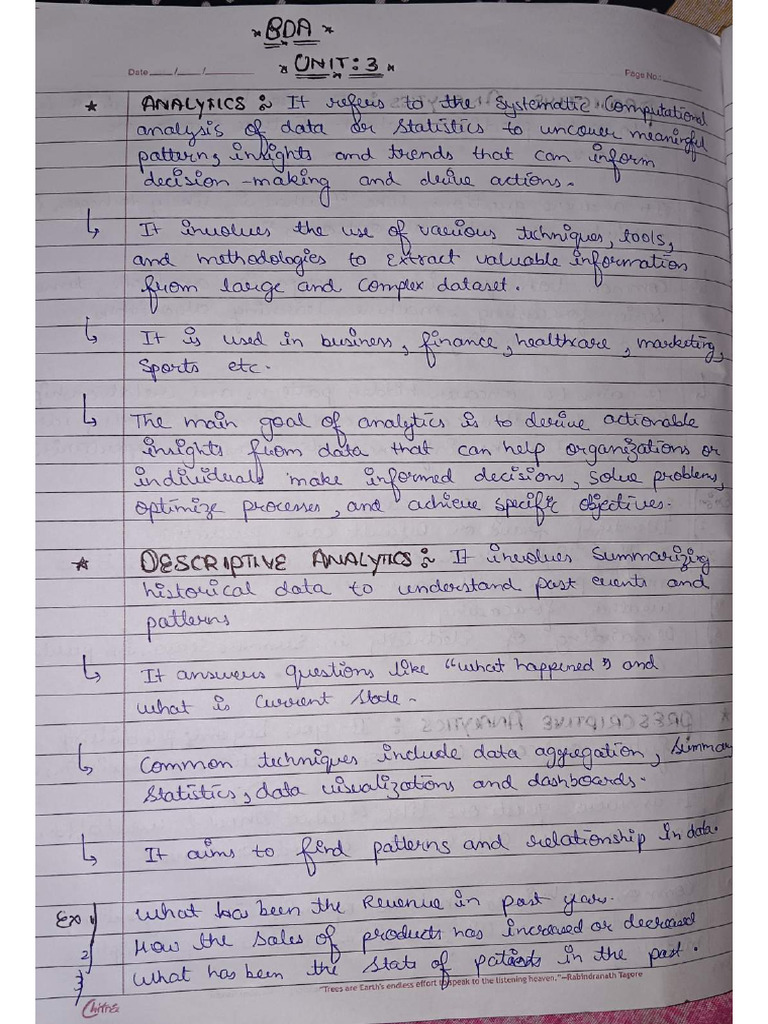 * BDA *
* UNIT: 3 *
Date / / Page No.:
* ANALYTICS :- It refers to the systematic computational
analysis of data or statistics to uncover meaningful
pattern, insights and trends that can inform
decision-making and derive actions.
↳ It involves the use of various techniques, tools,
and methodologies to extract valuable information
from large and complex dataset.
↳ It is used in business, finance, healthcare, marketing,
sports etc.
↳ The main goal of analytics is to derive actionable
insights from data that can help organizations or
individuals make informed decisions, solve problems,
optimize processes, and achieve specific objectives.
* DESCRIPTIVE ANALYTICS :- It involves Summarizing
historical data to understand past events and
patterns
↳ It answers questions like "what happened" and
what is current state.
↳ Common techniques include data aggregation, summary
statistics, data visualizations and dashboards.
↳ It aims to find patterns and relationship in data.
Ex 1) What has been the Revenue in past year.
2) How the sales of products has increased or decreased
3) What has been the state of patients in the past.
"Trees are Earth's endless effort to speak to the listening heaven."–Rabindranath Tagore
Chitra